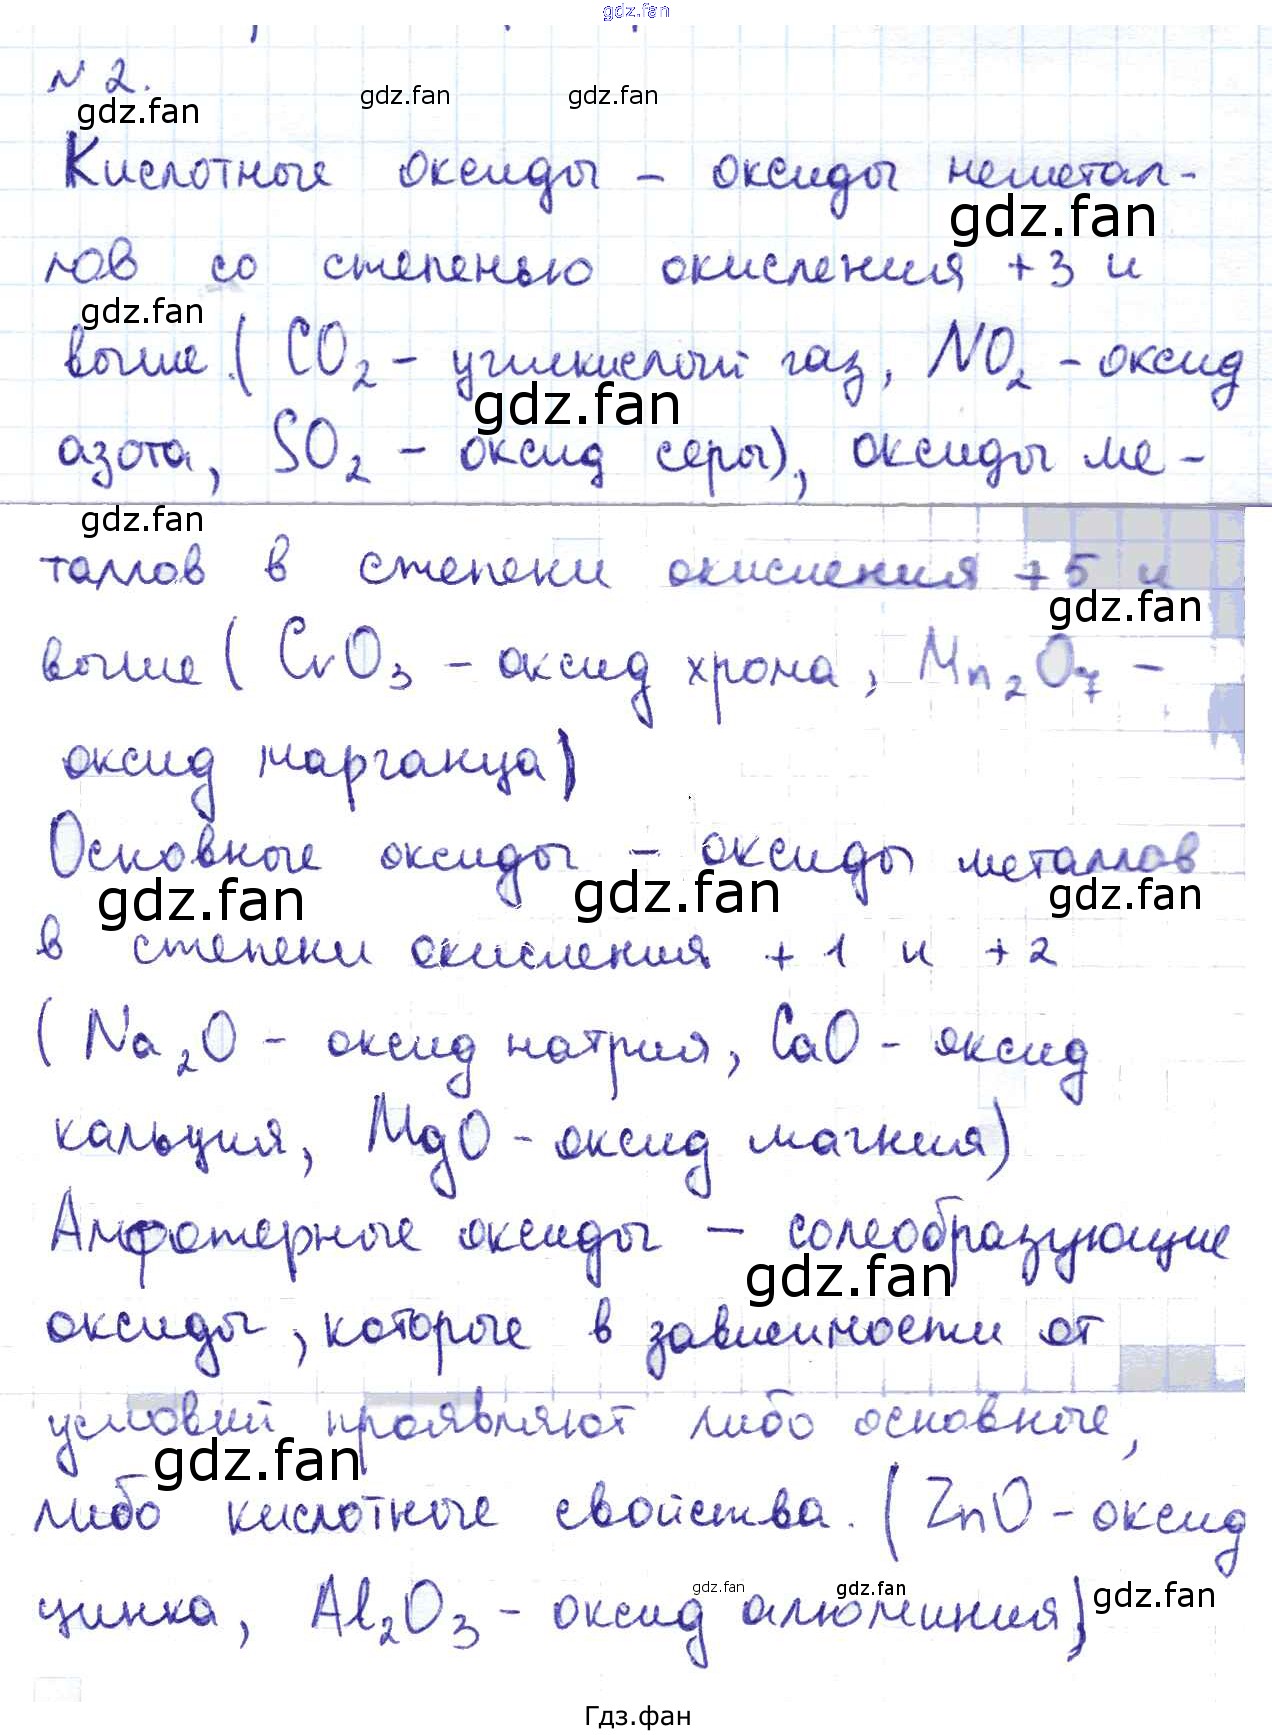 gdz.fan
N 2.
gdz.fan gdz.fan gdz.fan
Кислотные оксиды – оксиды неметал-
gdz.fan
лов со степенью окисления +3 и
gdz.fan
выше (CO2 – углекислый газ, NO2 – оксид
gdz.fan
азота, SO2 – оксид серы), оксиды ме-
gdz.fan
таллов в степени окисления +5 и
gdz.fan
выше (CrO3 – оксид хрома, Mn2O7 –
оксид марганца)
Основные оксиды – оксиды металлов
gdz.fan gdz.fan gdz.fan
в степени окисления +1 и +2
(Na2O – оксид натрия, CaO – оксид
кальция, MgO – оксид магния)
Амфотерные оксиды – солеобразующие
gdz.fan
оксиды, которые в зависимости от
условий проявляют либо основные,
gdz.fan
либо кислотные свойства. (ZnO – оксид
gdz.fan gdz.fan gdz.fan
цинка, Al2O3 – оксид алюминия)
Гдз.фан